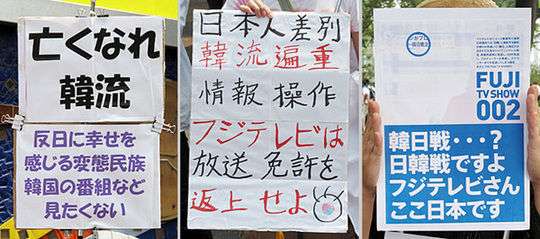 亡くなれ
韓流
反日に幸せを
感じる変態民族
韓国の番組など
見たくない
日本人差別
韓流遍重
情報操作
フジテレビは
放送免許を
返上せよ
FUJI
TV SHOW
002
韓日戦・・・?
日韓戦ですよ
フジテレビさん
ここ日本です